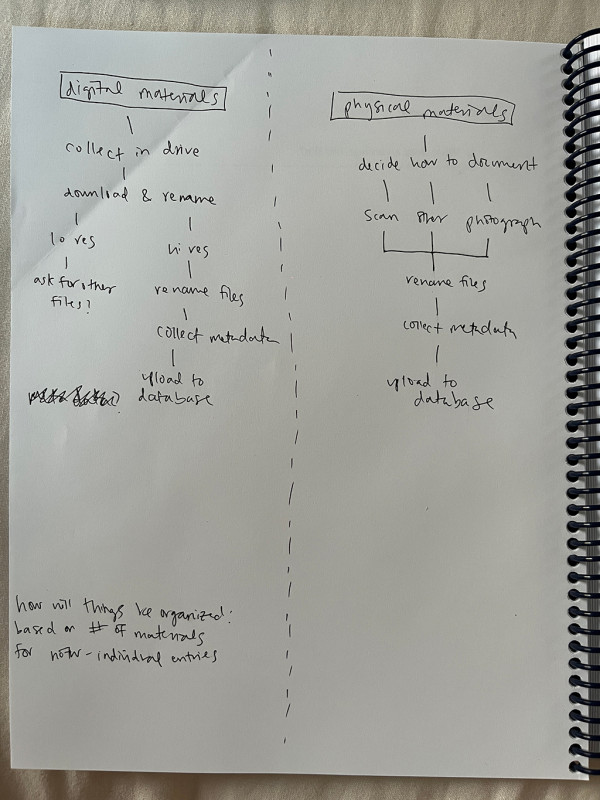 digital materials
collect in drive
download & rename
lo res
hi res
ask for other
files?
rename files
collect metadata
upload to
database
how will things be organized:
based on # of materials
for now - individual entries
physical materials
decide how to document
scan other photograph
rename files
collect metadata
upload to
database